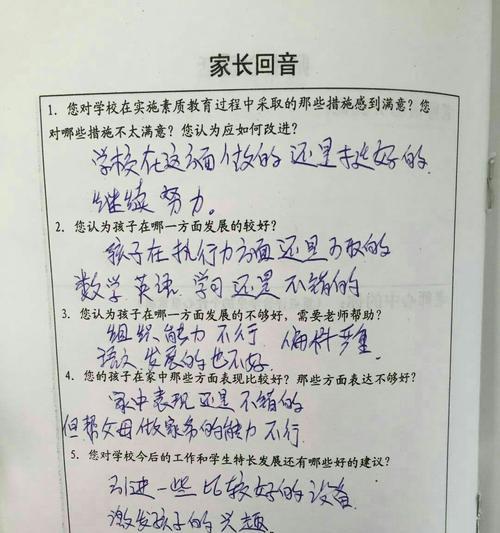 家长回音
1. 您对学校在实施素质教育过程中采取的那些措施感到满意？您
对哪些措施不太满意？您认为应如何改进？
学校在这方面做的还是挺好的
继续努力。
2. 您认为孩子在哪一方面发展的较好？
孩子在执行力方面还是可取的
数学英语学习还是不错的
3. 您认为孩子在哪一方面发展的不够好，需要老师帮助？
组织能力不行 偏科严重.
语文发展的也不好
4. 您的孩子在家中那些方面表现比较好？那些方面表达不够好？
家中表现还是不错的
但帮父母做家务的能力不行.
5. 您对学校今后的工作和学生特长发展还有哪些好的建议？
引进一些比较好的设备
激发孩子的兴趣